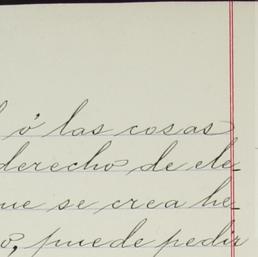 ó las cosas
derecho de ele-
que se crea he-
o, puede pedir